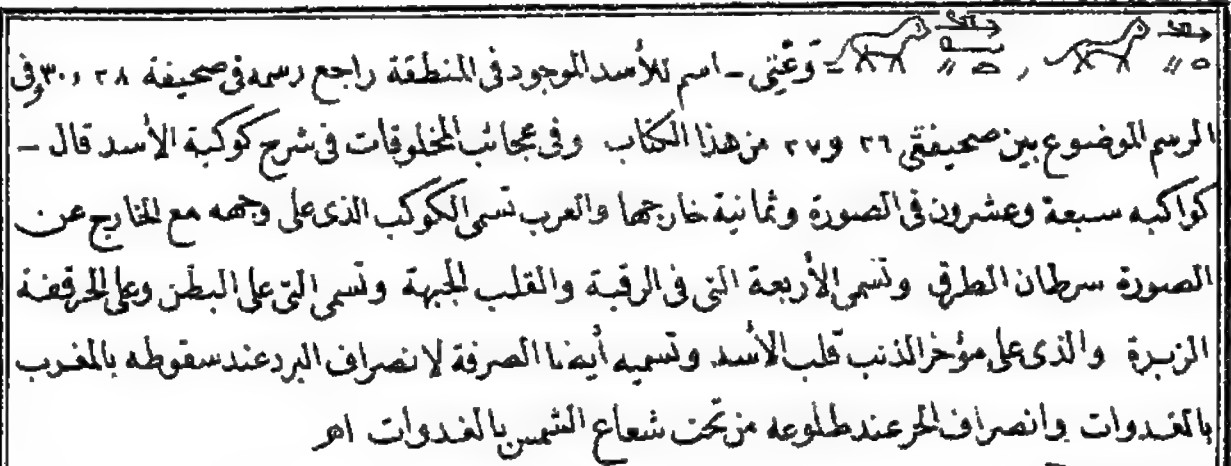 وَعْتِى - اسم للأسد الموجود فى المنطقة راجع رسمه فى صحيفة ٢٨ و٣٠ وفى
الرسم الموضوع بين صحيفتى ٢٦ و٢٧ من هذا الكتاب وفى عجائب المخلوقات فى شرح كوكبة الأسد قال -
كواكبه سبعة وعشرون فى الصورة وثمانية خارجها والعرب تسمى الكوكب الذى على وجهه مع الخارج عن
الصورة سرطان الطرف وتسمى الأربعة التى فى الرقبة والقلب الجبهة وتسمى التى على البطن وعلى الحرقفة
الزبرة والذى على مؤخر الذنب قلب الأسد وتسميه أيضا الصرفة لانصراف البرد عند سقوطه بالمغرب
بالغدوات وانصراف الحر عند طلوعه من تحت شعاع الشمس بالغدوات اهـ